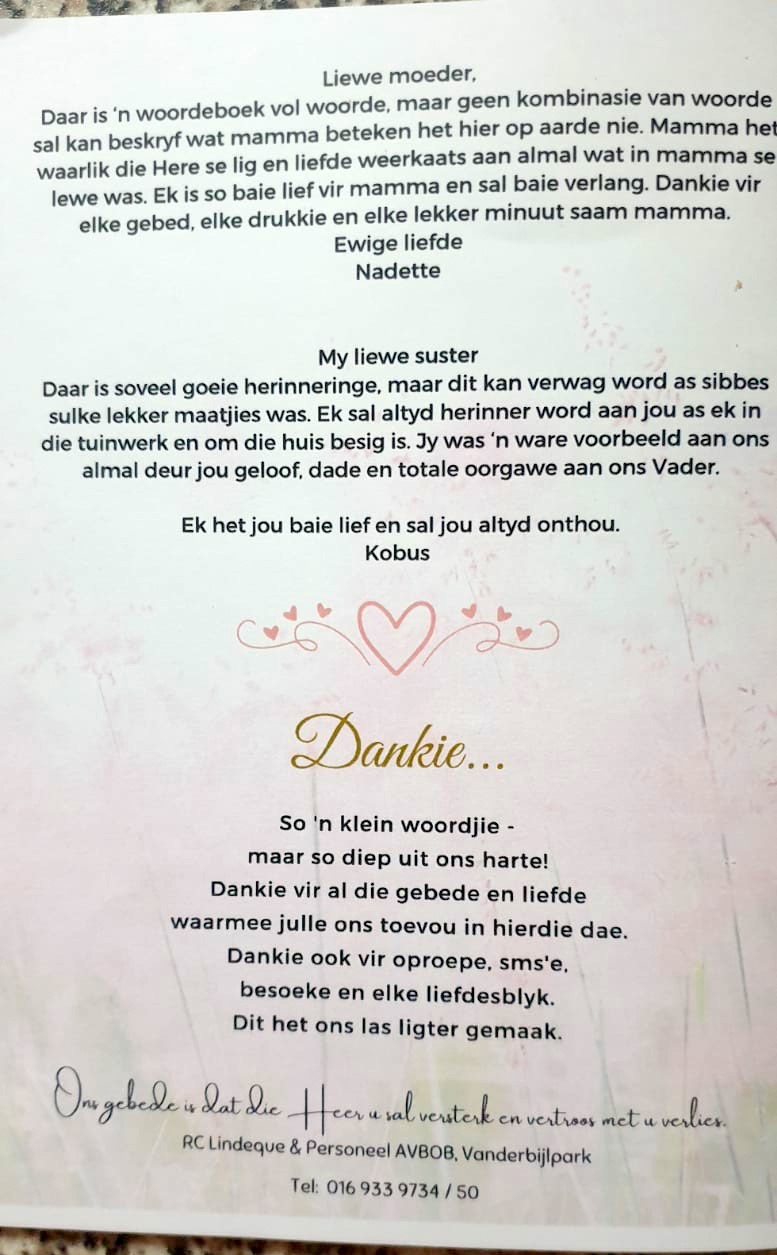 Liewe moeder,
Daar is 'n woordeboek vol woorde, maar geen kombinasie van woorde
sal kan beskryf wat mamma beteken het hier op aarde nie. Mamma het
waarlik die Here se lig en liefde weerkaats aan almal wat in mamma se
lewe was. Ek is so baie lief vir mamma en sal baie verlang. Dankie vir
elke gebed, elke drukkie en elke lekker minuut saam mamma.
Ewige liefde
Nadette
My liewe suster
Daar is soveel goeie herinneringe, maar dit kan verwag word as sibbes
sulke lekker maatjies was. Ek sal altyd herinner word aan jou as ek in
die tuinwerk en om die huis besig is. Jy was 'n ware voorbeeld aan ons
almal deur jou geloof, dade en totale oorgawe aan ons Vader.
Ek het jou baie lief en sal jou altyd onthou.
Kobus
Dankie...
So 'n klein woordjie -
maar so diep uit ons harte!
Dankie vir al die gebede en liefde
waarmee julle ons toevou in hierdie dae.
Dankie ook vir oproepe, sms'e,
besoeke en elke liefdesblyk.
Dit het ons las ligter gemaak.
Ons gebede is dat die Heer u sal versterk en vertroos met u verlies.
RC Lindeque & Personeel AVBOB, Vanderbijlpark
Tel: 016 933 9734 / 50